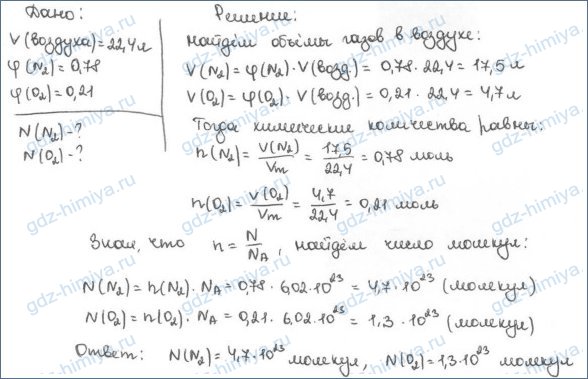 Дано:
V(воздуха)=22,4л
φ(N₂)=0,78
φ(O₂)=0,21
N(N₂)-?
N(O₂)-?
Решение:
Найдём объёмы газов в воздухе:
V(N₂)=φ(N₂)·V(возд.)=0,78·22,4=17,5л
V(O₂)=φ(O₂)·V(возд.)=0,21·22,4=4,7л
Тогда химические количества равны:
n(N₂)=V(N₂)/Vm=17,5/22,4=0,78 моль
n(O₂)=V(O₂)/Vm=4,7/22,4=0,21 моль
Зная, что n=N/NA, найдём число молекул:
N(N₂)=n(N₂)·NA=0,78·6,02·10²³=4,7·10²³ (молекул)
N(O₂)=n(O₂)·NA=0,21·6,02·10²³=1,3·10²³ (молекул)
Ответ: N(N₂)=4,7·10²³ молекул, N(O₂)=1,3·10²³ молекул
gdz-himiya.ru